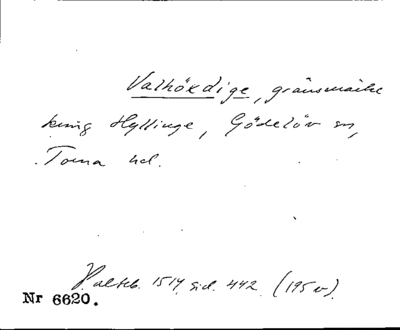 Valhökdige, gränsmärke
kring Hyllinge, Gödelöv sn,
Torna hd.
Palteb. 1514, sid. 442. (195 v).
Nr 6620.